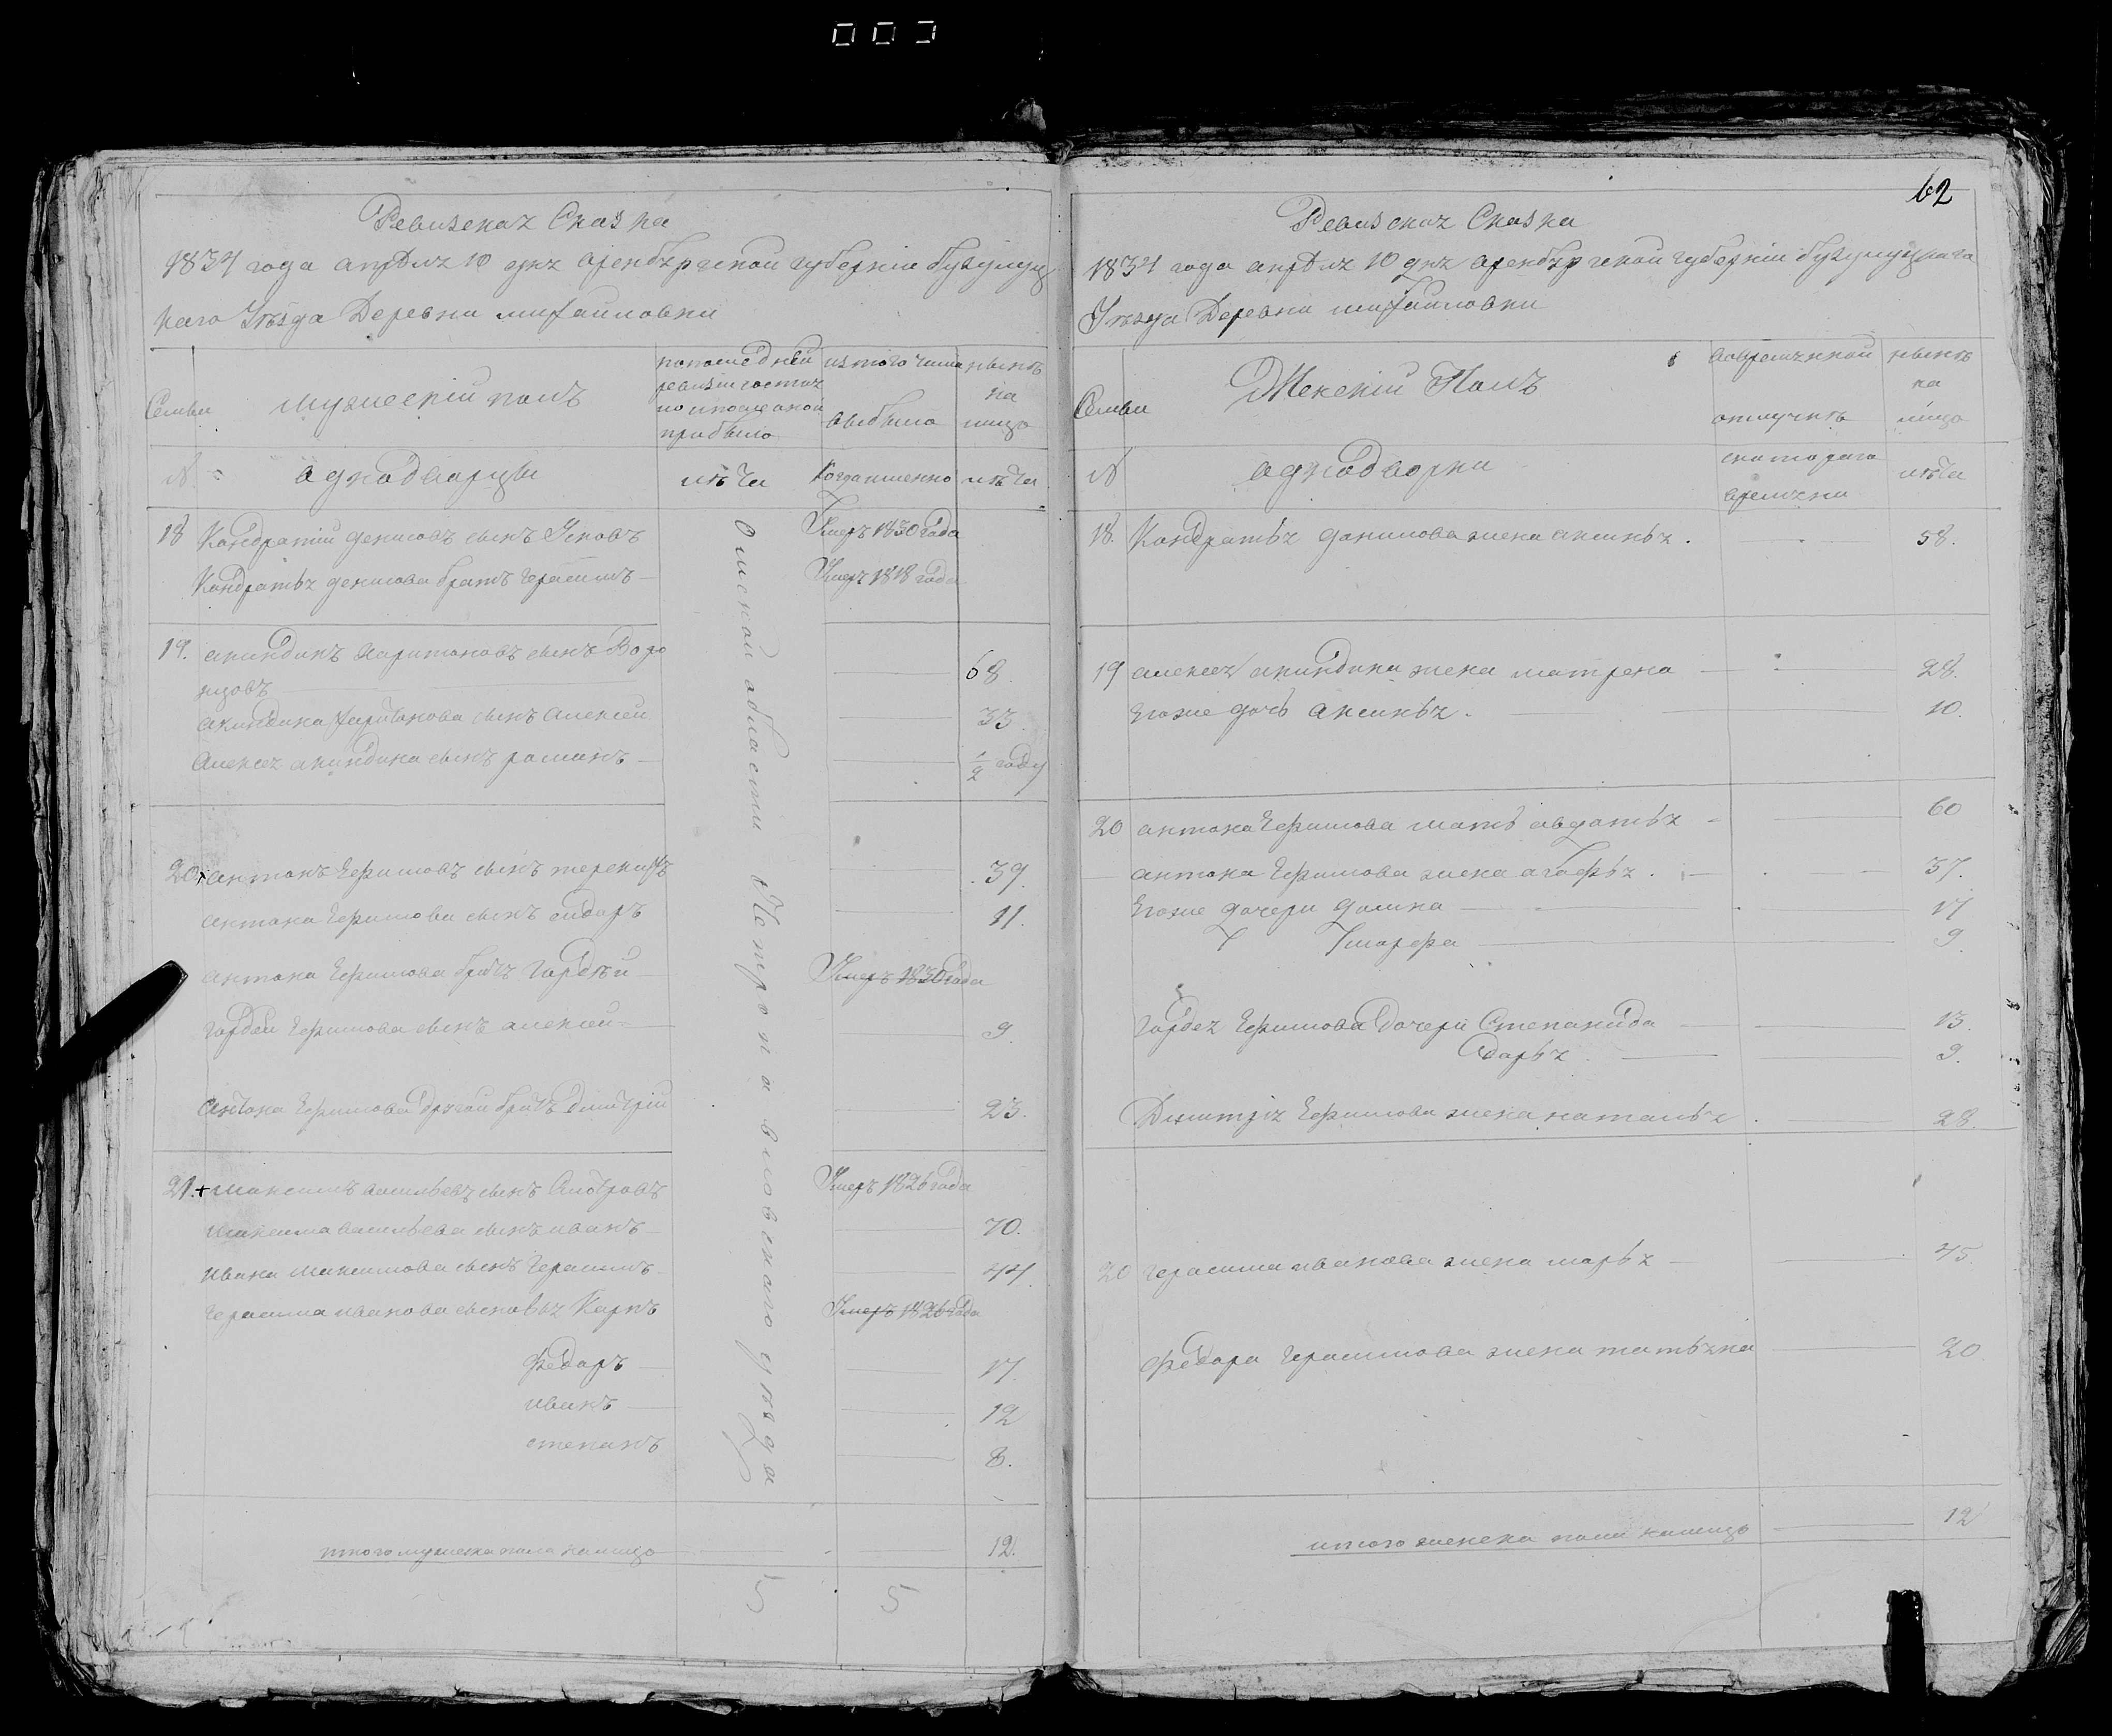 62
Ревизская Сказка
1834 года апреля 10 дня аренбургской губернии бугулуц
каго Уезда Деревни михайловки
Семьи
мужеский полъ
попоследней
ревизии состоя
ло и после оной
прибыло
изтого числа
выбыло
ныне
на
лицо
№
аднодварцы
лѣта
Когда именно
лѣта
18 Кондратий денисовъ сынъ Усковъ
Умеръ 1830 года
Кондратья денисова братъ герасимъ
Умеръ 1818 года
19. акиндинъ харитоновъ сынъ Воро
нцовъ
68.
акиндина харитонова сынъ алексей
33.
алексея акиндина сынъ романъ
1/2 году
20. антонъ Ефимовъ сынъ
39.
антона Ефимова сынъ сидаръ
11.
антона Ефимова братъ гардѣй
Умеръ 1830 года
гордея Ефимова сынъ алексей
9.
антона Ефимова другой братъ дмитрий
23.
21. + максимъ васильевъ сынъ
Умеръ 1826 года
максима васильева сынъ иванъ
70.
ивана максимова сынъ герасимъ
44.
герасима иванова сыновья Карпъ
Умеръ 1826 года
федаръ
17.
иванъ
12
степанъ
8.
итого мужеска пола налицо
12.
5 5
Ревизская Сказка
1834 года апреля 10 дня аренбургской губернии бугулуцкаго
Уезда Деревни михайловки
Семьи
Женский Полъ
вовременной
отлучке
ныне
на
лицо
№
аднодворки
скотораго
времени
лѣта
18. Кондратья данилова жена аксинья.
58.
19 алексея акиндина жена матрена
28.
Егоже дочь аксинья.
10.
20 антона Ефимова мать авдотья
60
антона Ефимова жена агафья.
37.
Егоже дочери домна
17
9
гордея Ефимова Дочери Степанида
13.
дарья.
9.
Димитрия Ефимова жена наталья
28.
20 герасима иванова жена марья
45
федора герасимова жена татьяна
20
итого женска пола налицо
12